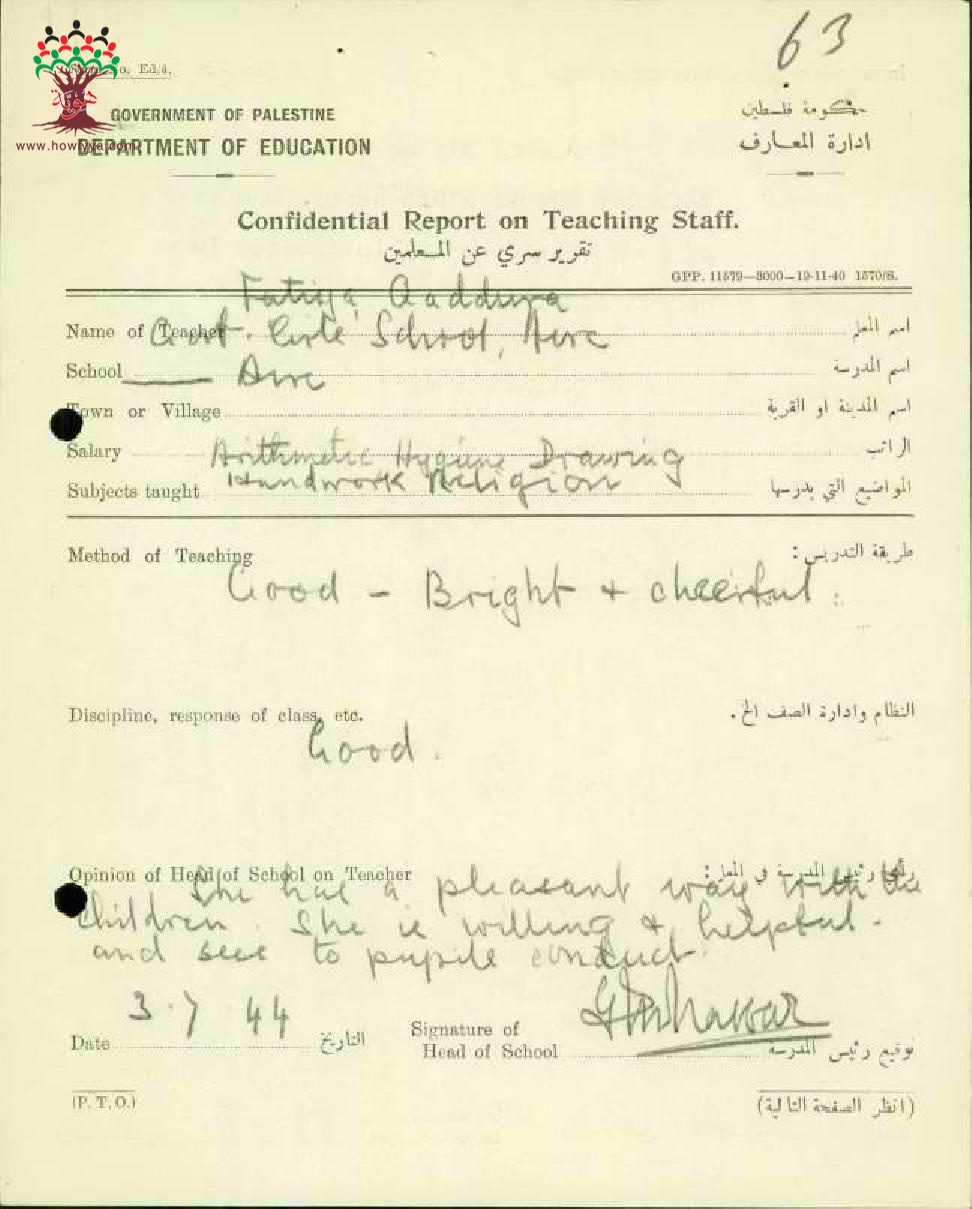 63
Ed/4.
GOVERNMENT OF PALESTINE
حكومة فلسطين
www.howiyya.com
DEPARTMENT OF EDUCATION
ادارة المعارف
Confidential Report on Teaching Staff.
تقرير سري عن المعلمين
GPP. 11579—3000—19-11-40 1570/S.
Name of Teacher
اسم المعلم
Govt. Girls School, Acre
School
اسم المدرسة
Acre
Town or Village
اسم المدينة او القرية
Salary
الراتب
Arithmetic Hygiene Drawing
Handwork Religion
Subjects taught
المواضيع التي يدرسها
Method of Teaching
طريقة التدريس :
Good - Bright + cheerful.
Discipline, response of class, etc.
النظام وادارة الصف الخ .
Good.
Opinion of Head of School on Teacher
رأي رئيس المدرسة في المعلم :
She has a pleasant way with the
children. She is willing & helpful -
and sees to pupils conduct.
3.7.44
Date
التاريخ
Signature of
Head of School
توقيع رئيس المدرسة
(P. T. O.)
(انظر الصفحة التالية)